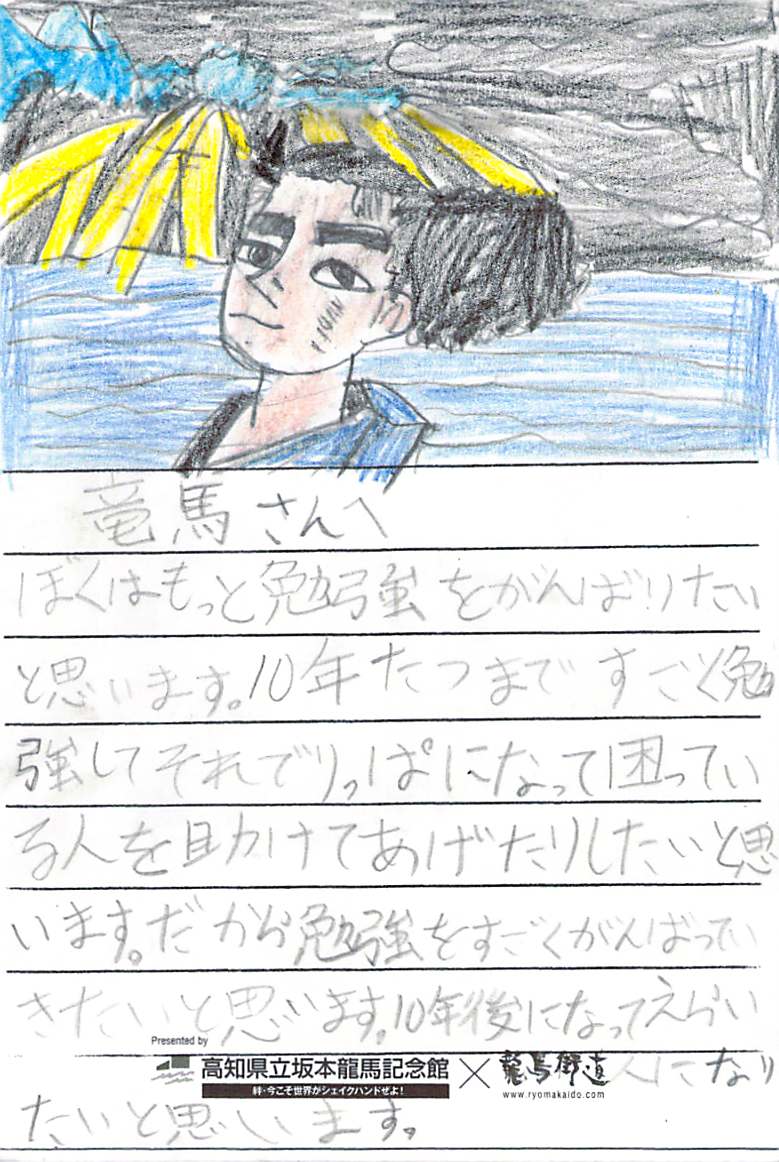 竜馬さんへ
ぼくはもっと勉強をがんばりたい
と思います。10年たつまですごく勉
強してそれでりっぱになって困ってい
る人を助けてあげたりしたいと思
います。だから勉強をすごくがんばってい
きたいと思います。10年後になってえらい
Presented by
高知県立坂本龍馬記念館 × 龍馬街道 人になり
絆・今こそ世界がシェイクハンドぜよ!
www.ryomakaido.com
たいと思います。